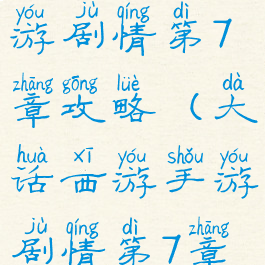 yóu jù qíng dì
游剧情第7
zhāng gōng lüè dà
章攻略（大
huà xī yóu shǒu yóu
话西游手游
jù qíng dì zhāng
剧情第7章